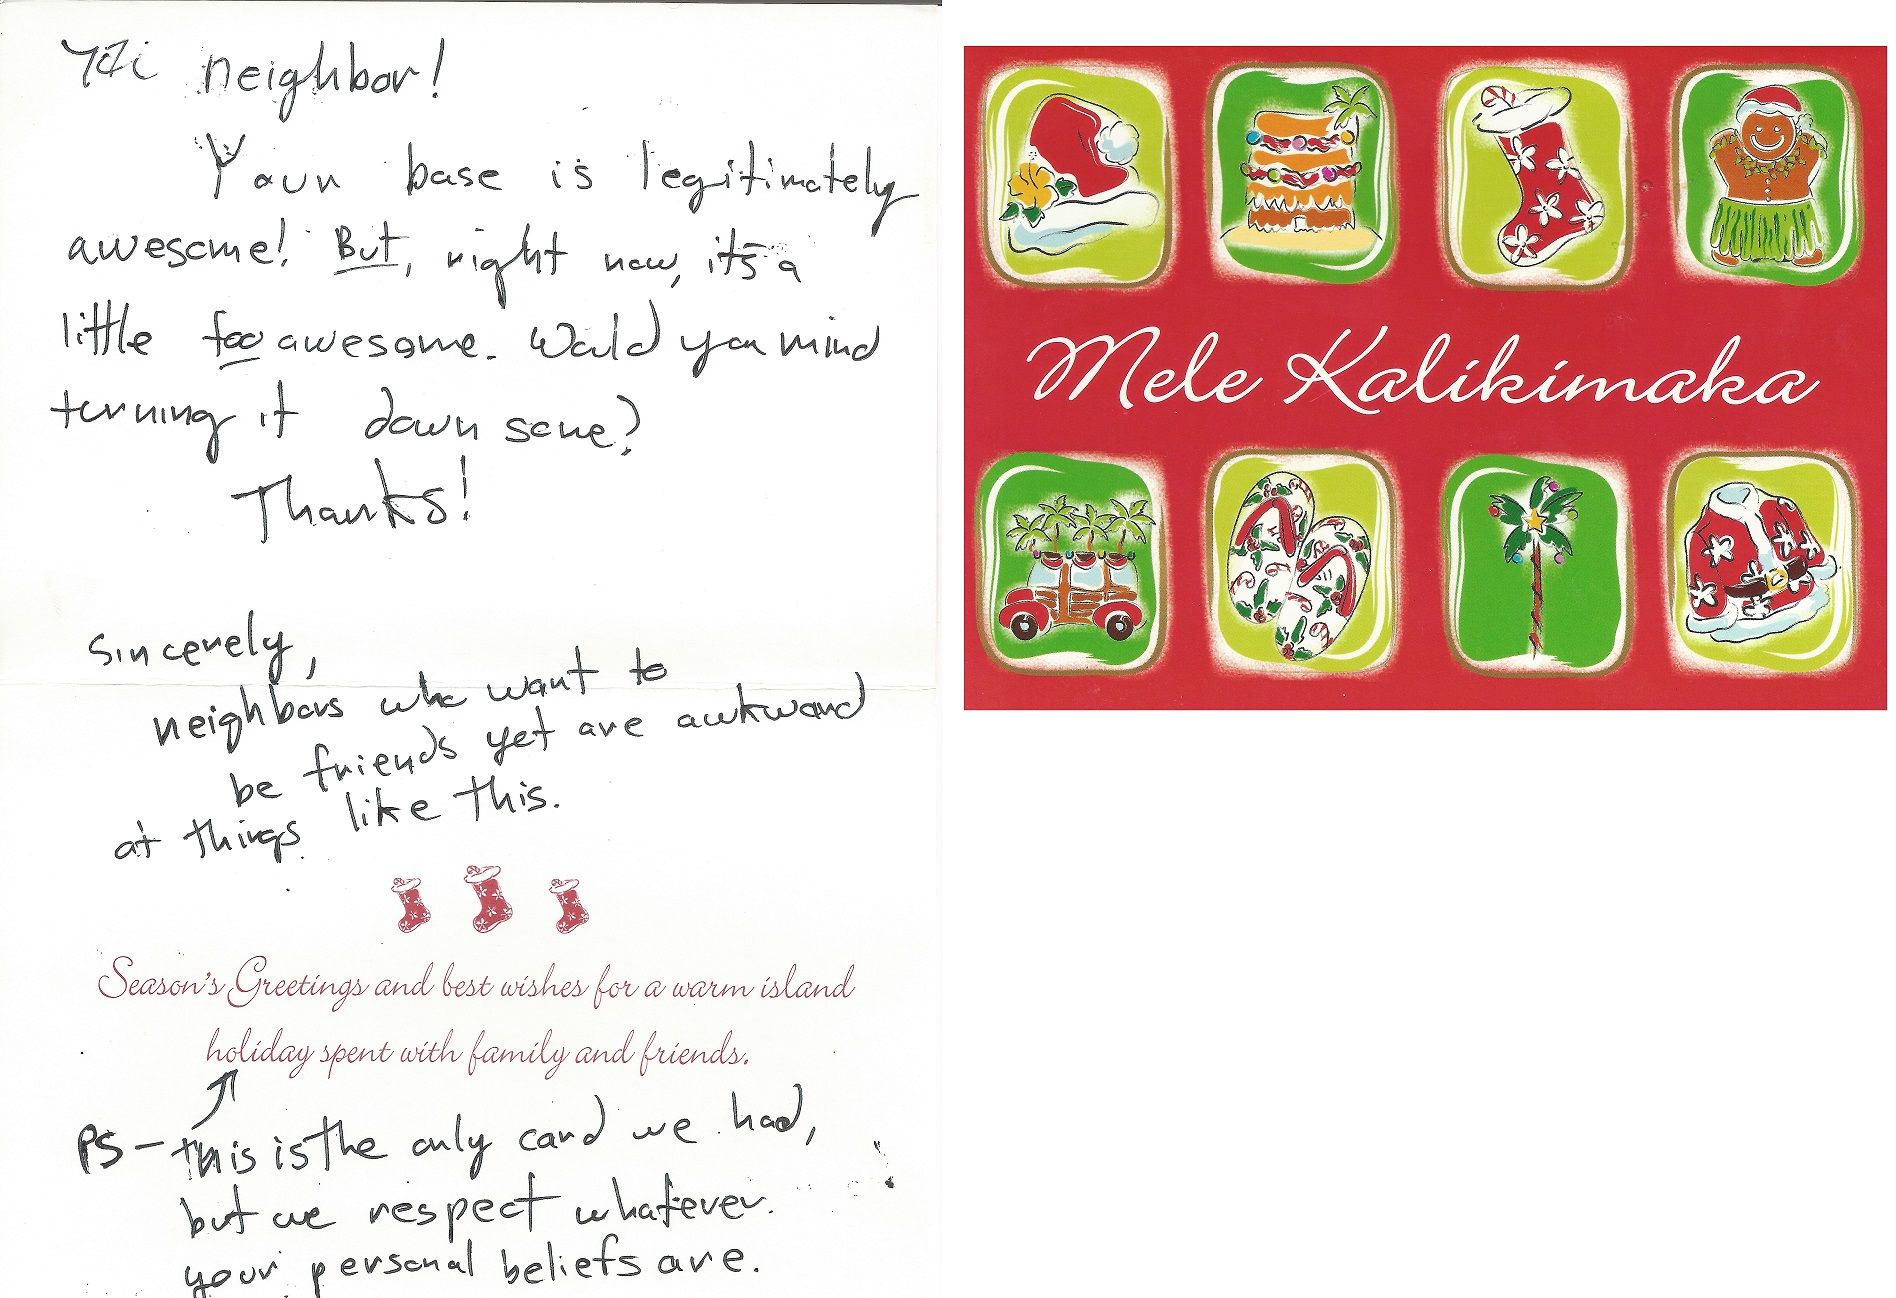 Hi neighbor!
Your base is legitimately
awesome! But, right now, it's a
little too awesome. Would you mind
turning it down some?
Thanks!
Sincerely,
neighbors who want to
be friends yet are awkward
at things like this.
Season's Greetings and best wishes for a warm island
holiday spent with family and friends.
PS - this is the only card we had,
but we respect whatever
your personal beliefs are.
Mele Kalikimaka